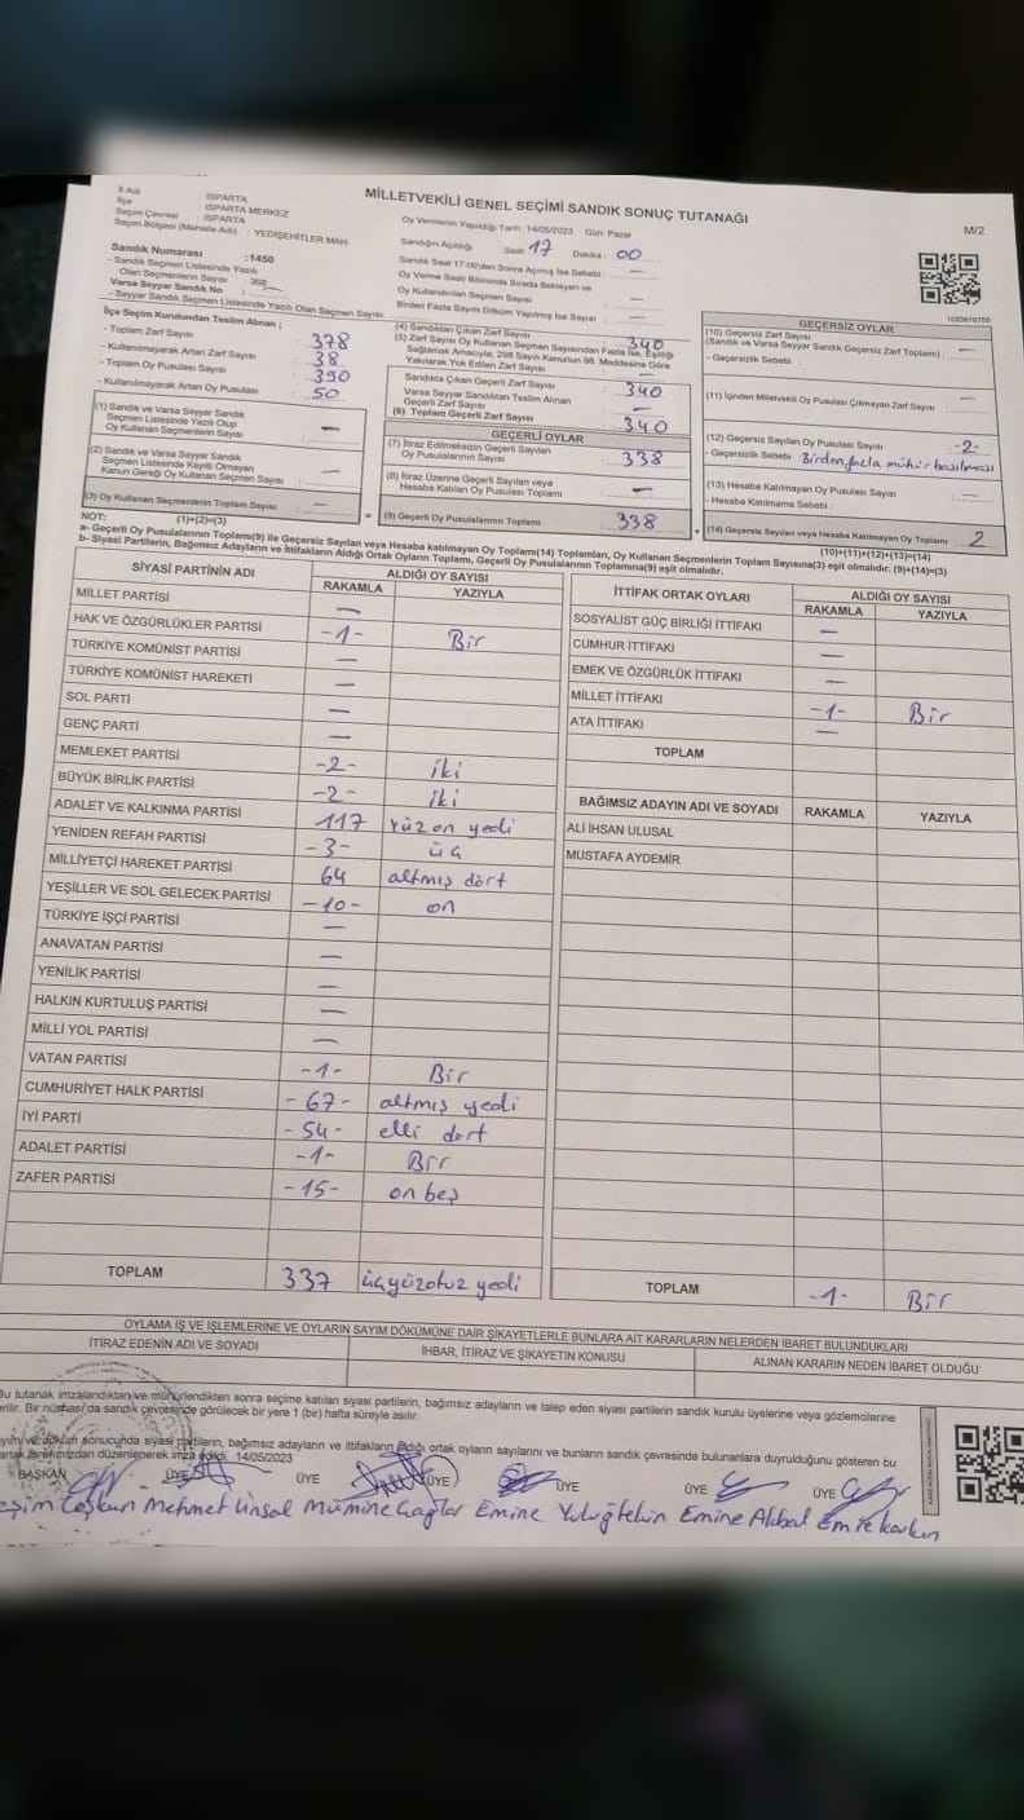 MİLLETVEKİLİ GENEL SEÇİMİ SANDIK SONUÇ TUTANAĞI
M/2
İl Adı : ISPARTA
İlçe : ISPARTA MERKEZ
Seçim Çevresi : ISPARTA
Seçim Bölgesi (Mahalle Adı) : YEDİŞEHİTLER MAH.
Oy Vermenin Yapıldığı Tarih: 14/05/2023 Gün: Pazar
Sandığın Açılışı Saat: 17 Dakika: 00
Sandık Saat 17:00'den Sonra Açılmış İse Sebebi —
Oy Verme Saati Bitiminde Sırada Bekleyen ve
Oy Kullandırılan Seçmen Sayısı —
Birden Fazla Sayım Döküm Yapılmış İse Sayısı —
Sandık Numarası :1450
- Sandık Seçmen Listesinde Yazılı
Olan Seçmenlerin Sayısı
Varsa Seyyar Sandık No
- Seyyar Sandık Seçmen Listesinde Yazılı Olan Seçmen Sayısı
İlçe Seçim Kurulundan Teslim Alınan ;
- Toplam Zarf Sayısı 378
- Kullanılmayarak Artan Zarf Sayısı 38
- Toplam Oy Pusulası Sayısı 390
- Kullanılmayarak Artan Oy Pusulası 50
(1) Sandık ve Varsa Seyyar Sandık
Seçmen Listesinde Yazılı Olup
Oy Kullanan Seçmenlerin Sayısı —
(2) Sandık ve Varsa Seyyar Sandık
Seçmen Listesinde Kayıtlı Olmayan
Kanun Gereği Oy Kullanan Seçmen Sayısı —
(3) Oy Kullanan Seçmenlerin Toplam Sayısı —
(1)+(2)=(3)
(4) Sandıktan Çıkan Zarf Sayısı 340
(5) Zarf Sayısı Oy Kullanan Seçmen Sayısından Fazla İse, Eşitliği
Sağlamak Amacıyla, 298 Sayılı Kanunun 98. Maddesine Göre
Yakılarak Yok Edilen Zarf Sayısı —
Sandıkta Çıkan Geçerli Zarf Sayısı 340
Varsa Seyyar Sandıktan Teslim Alınan
Geçerli Zarf Sayısı —
(6) Toplam Geçerli Zarf Sayısı 340
GEÇERLİ OYLAR
(7) İtiraz Edilmeksizin Geçerli Sayılan
Oy Pusulalarının Sayısı 338
(8) İtiraz Üzerine Geçerli Sayılan veya
Hesaba Katılan Oy Pusulası Toplamı —
(9) Geçerli Oy Pusulalarının Toplamı 338
GEÇERSİZ OYLAR
(10) Geçersiz Zarf Sayısı
(Sandık ve Varsa Seyyar Sandık Geçersiz Zarf Toplamı) —
- Geçersizlik Sebebi
(11) İçinden Milletvekili Oy Pusulası Çıkmayan Zarf Sayısı —
(12) Geçersiz Sayılan Oy Pusulası Sayısı -2-
- Geçersizlik Sebebi Birden fazla mühür basılması
(13) Hesaba Katılmayan Oy Pusulası Sayısı —
- Hesaba Katılmama Sebebi
(14) Geçersiz Sayılan veya Hesaba Katılmayan Oy Toplamı 2
(10)+(11)+(12)+(13)=(14)
NOT:
a- Geçerli Oy Pusulalarının Toplamı(9) ile Geçersiz Sayılan veya Hesaba katılmayan Oy Toplamı(14) Toplamları, Oy Kullanan Seçmenlerin Toplam Sayısına(3) eşit olmalıdır. (9)+(14)=(3)
b- Siyasi Partilerin, Bağımsız Adayların ve İttifakların Aldığı Ortak Oyların Toplamı, Geçerli Oy Pusulalarının Toplamına(9) eşit olmalıdır.
SİYASİ PARTİNİN ADI ALDIĞI OY SAYISI
RAKAMLA YAZIYLA
MİLLET PARTİSİ —
HAK VE ÖZGÜRLÜKLER PARTİSİ -1- Bir
TÜRKİYE KOMÜNİST PARTİSİ —
TÜRKİYE KOMÜNİST HAREKETİ —
SOL PARTİ —
GENÇ PARTİ —
MEMLEKET PARTİSİ -2- iki
BÜYÜK BİRLİK PARTİSİ -2- iki
ADALET VE KALKINMA PARTİSİ 117 Yüz on yedi
YENİDEN REFAH PARTİSİ -3- üç
MİLLİYETÇİ HAREKET PARTİSİ 64 altmış dört
YEŞİLLER VE SOL GELECEK PARTİSİ -10- on
TÜRKİYE İŞÇİ PARTİSİ —
ANAVATAN PARTİSİ —
YENİLİK PARTİSİ —
HALKIN KURTULUŞ PARTİSİ —
MİLLİ YOL PARTİSİ —
VATAN PARTİSİ -1- Bir
CUMHURİYET HALK PARTİSİ -67- altmış yedi
İYİ PARTİ -54- elli dört
ADALET PARTİSİ -1- Bir
ZAFER PARTİSİ -15- on beş
TOPLAM 337 üçyüzotuz yedi
İTTİFAK ORTAK OYLARI ALDIĞI OY SAYISI
RAKAMLA YAZIYLA
SOSYALİST GÜÇ BİRLİĞİ İTTİFAKI —
CUMHUR İTTİFAKI —
EMEK VE ÖZGÜRLÜK İTTİFAKI —
MİLLET İTTİFAKI -1- Bir
ATA İTTİFAKI —
TOPLAM
BAĞIMSIZ ADAYIN ADI VE SOYADI RAKAMLA YAZIYLA
ALİ İHSAN ULUSAL
MUSTAFA AYDEMİR
TOPLAM -1- Bir
OYLAMA İŞ VE İŞLEMLERİNE VE OYLARIN SAYIM DÖKÜMÜNE DAİR ŞİKAYETLERLE BUNLARA AİT KARARLARIN NELERDEN İBARET BULUNDUKLARI
İTİRAZ EDENİN ADI VE SOYADI İHBAR, İTİRAZ VE ŞİKAYETİN KONUSU ALINAN KARARIN NEDEN İBARET OLDUĞU
Bu tutanak imzalandıktan ve mühürlendikten sonra seçime katılan siyasi partilerin, bağımsız adayların ve talep eden siyasi partilerin sandık kurulu üyelerine veya gözlemcilerine
verilir. Bir nüshası da sandık çevresinde görülecek bir yere 1 (bir) hafta süreyle asılır.
sonucunda siyasi partilerin, bağımsız adayların ve ittifakların aldığı ortak oyların sayılarını ve bunların sandık çevresinde bulunanlara duyrulduğunu gösteren bu
tarafımızdan düzenlenerek imza edildi. 14/05/2023
BAŞKAN ÜYE ÜYE ÜYE ÜYE ÜYE ÜYE
Coşkun Mehmet Ünsal Mümine Çağlar Emine Emine Akbal Emre